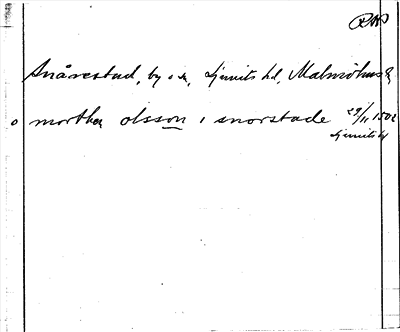 RAP
Snårestad, by o sn, Ljunits hd, Malmöhus l
o morthen olsson i snorstade 29/11 1502
Ljunits hd